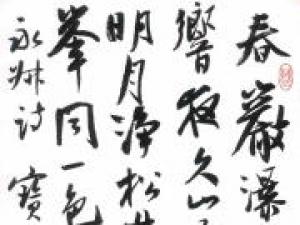 春巖瀑
響夜久山
明月淨松
峯同一色
永叔詩 寶